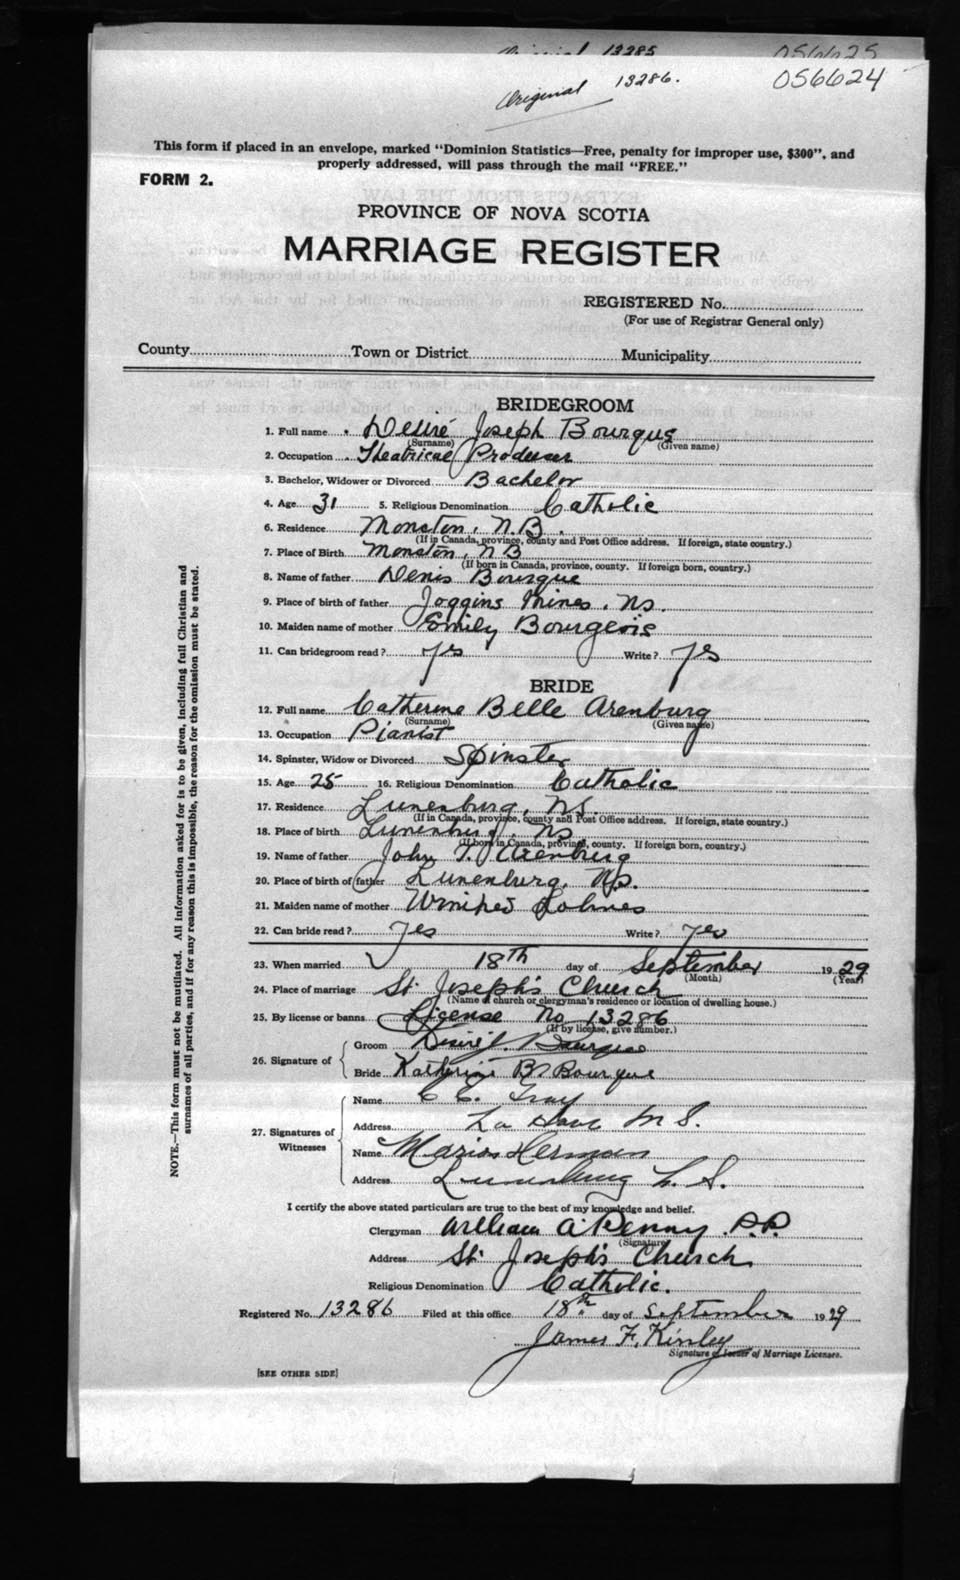 Original 13285 056625
Original 13286. 056624
This form if placed in an envelope, marked "Dominion Statistics—Free, penalty for improper use, $300", and
properly addressed, will pass through the mail "FREE."
FORM 2.
PROVINCE OF NOVA SCOTIA
MARRIAGE REGISTER
REGISTERED No.
(For use of Registrar General only)
County Town or District Municipality
BRIDEGROOM
1. Full name Desiré Joseph Bourque
(Surname) (Given name)
2. Occupation Theatrical Producer
3. Bachelor, Widower or Divorced Bachelor
4. Age 31 5. Religious Denomination Catholic
6. Residence Moncton, N.B.
(If in Canada, province, county and Post Office address. If foreign, state country.)
7. Place of Birth Moncton, N B
(If born in Canada, province, county. If foreign born, country.)
8. Name of father Denis Bourque
9. Place of birth of father Joggins Mines, Ns.
10. Maiden name of mother Emily Bourgeois
11. Can bridegroom read? Yes Write? Yes
BRIDE
12. Full name Catherine Belle Arenburg
(Surname) (Given name)
13. Occupation Pianist
14. Spinster, Widow or Divorced Spinster
15. Age 25 16. Religious Denomination Catholic
17. Residence Lunenburg, NS.
(If in Canada, province, county and Post Office address. If foreign, state country.)
18. Place of birth Lunenburg, NS
(If born in Canada, province, county. If foreign born, country.)
19. Name of father John T. Arenburg
20. Place of birth of father Lunenburg, NS.
21. Maiden name of mother Winifred
22. Can bride read? Yes Write? Yes
23. When married 18th day of September 1929
(Month) (Year)
24. Place of marriage St. Joseph's Church
(Name of church or clergyman's residence or location of dwelling house.)
25. By license or banns License No 13286
(If by license, give number.)
26. Signature of Groom Desiré J. Bourque
Bride Katherine B Bourque
27. Signatures of Witnesses Name C E. Gray
Address La Have N S.
Name Marion Herman
Address Lunenburg N. S.
I certify the above stated particulars are true to the best of my knowledge and belief.
Clergyman William A. Penny P.P.
(Signature)
Address St. Joseph's Church
Religious Denomination Catholic.
Registered No. 13286 Filed at this office 18th day of September 1929
James F. Kinley
Signature of Issuer of Marriage Licenses.
[SEE OTHER SIDE]
NOTE.—This form must not be mutilated. All information asked for is to be given, including full Christian and
surnames of all parties, and if for any reason this is impossible, the reason for the omission must be stated.